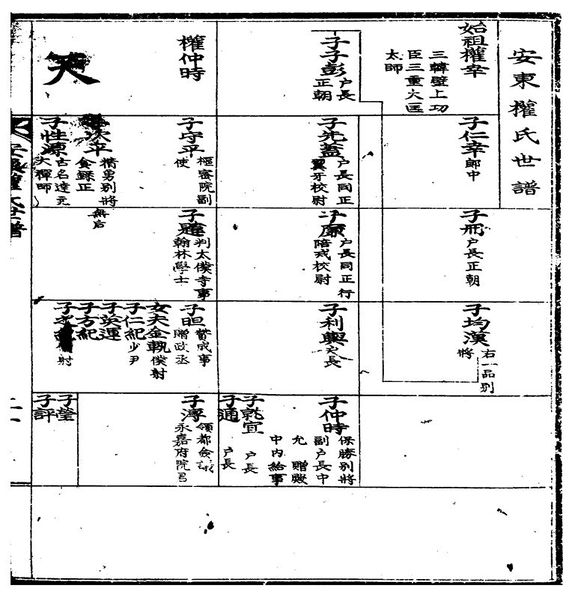 安東權氏世譜
始祖權幸
三韓壁上功
臣三重大匡
太師
子仁幸 郎中
子冊 戶長正朝
子均漢 右一品別
將
子子彭 戶長
正朝
子先蓋 戶長同正
翼牙校尉
子廉 戶長同正行
陪戎校尉
子利輿 戶長
子仲時 保勝別將
副戶長中
允 贈殿
中內給事
子就宜 戶長
子通 戶長
權仲時
天
子守平 樞密院副
使
次平
別將
食錄正
無后
子性源 古名達
大禪師
判太僕寺事
翰林學士
子㫜 贊成事
贈政丞
女夫金 僕射
子仁紀 少尹
子英運
子方紀
子
射
子 領都僉
永嘉府院君
子瑩
子評